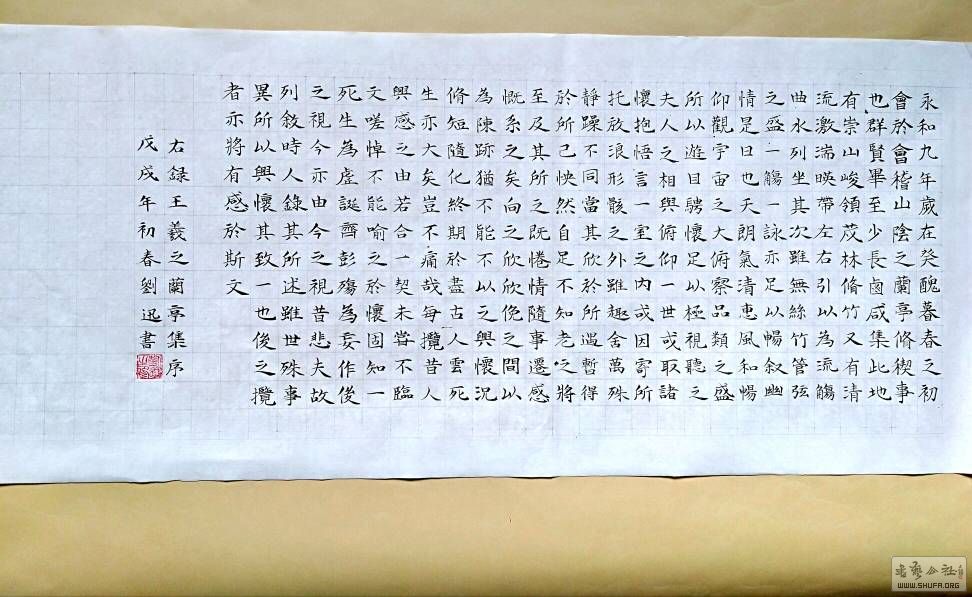 永和九年歲在癸醜暮春之初
會於會稽山陰之蘭亭脩禊事
也群賢畢至少長鹵咸集此地
有崇山峻領茂林脩竹又有清
流激湍暎帶左右引以為流觴
曲水列坐其次雖無絲竹管弦
之盛一觴一詠亦足以暢叙幽
情是日也天朗氣清惠風和暢
仰觀宇宙之大俯察品類之盛
所以遊目騁懷足以極視聽之
夫人之相與俯仰一世或取諸
懷抱悟言一室之内或因寄所
托放浪形骸之外雖趣舍萬殊
靜躁不同當其欣於所遇暫得
於所己怏然自足不知老之將
至及其所之既惓情隨事遷感
慨系之矣向之欣欣俛之間以
為陳跡猶不能不以之興懷況
脩短隨化終期於盡古人雲死
生亦大矣豈不痛哉每攬昔人
興感之由若合一契未甞不臨
文嗟悼不能喻之於懷固知一
死生為虛誕齊彭殤為妄作後
之視今亦由今之視昔悲夫故
列敘時人錄其所述雖世殊事
異所以興懷其致一也後之攬
者亦將有感於斯文
右録王羲之蘭亭集序
戊戌年初春劉迅書
WWW.SHUFA.ORG